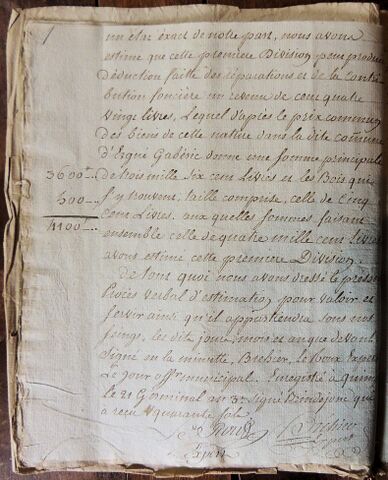 un etat exact de notre part, nous avons
estimé que cette premiere Division peut produire
déduction faite des réparations et de la contri
bution foncière un revenu de cent quatre
vingt livres, Lequel d'après le prix commun
des biens de cette nature dans la dite commune
d'Ergué Gabéric donne une somme principale
3600 ‡.. de trois mille Six cent Livres et les Bois qui
500 .. s'y trouvent, taillé comprise, celle de Cinq
4100 .. cent Livres. aux quelles sommes faisant
ensemble celle de quatre mille cent livres
avons estimé cette premiere Division.
De tout quoi nous avons dressé le présent
Procès verbal d'estimation pour valoir et
servir ainsi qu'il appartiendra sous nos
seings, les dits jour, mois et an que devant
Signé en la minutte, Brehier, le Roux Expert
Le Jour off. municipal. Enregistré à Quimper
le 21 Germinal an 3e Signé qui
a reçu quarante sols
Expert
Expert